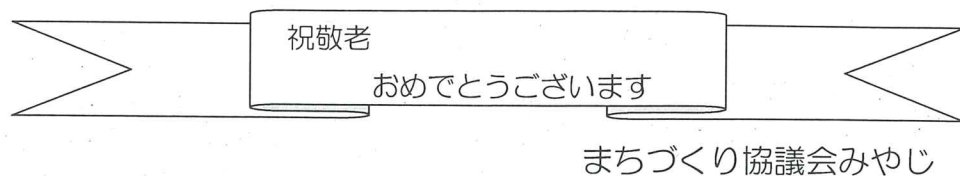 祝敬老
おめでとうございます
まちづくり協議会みやじ